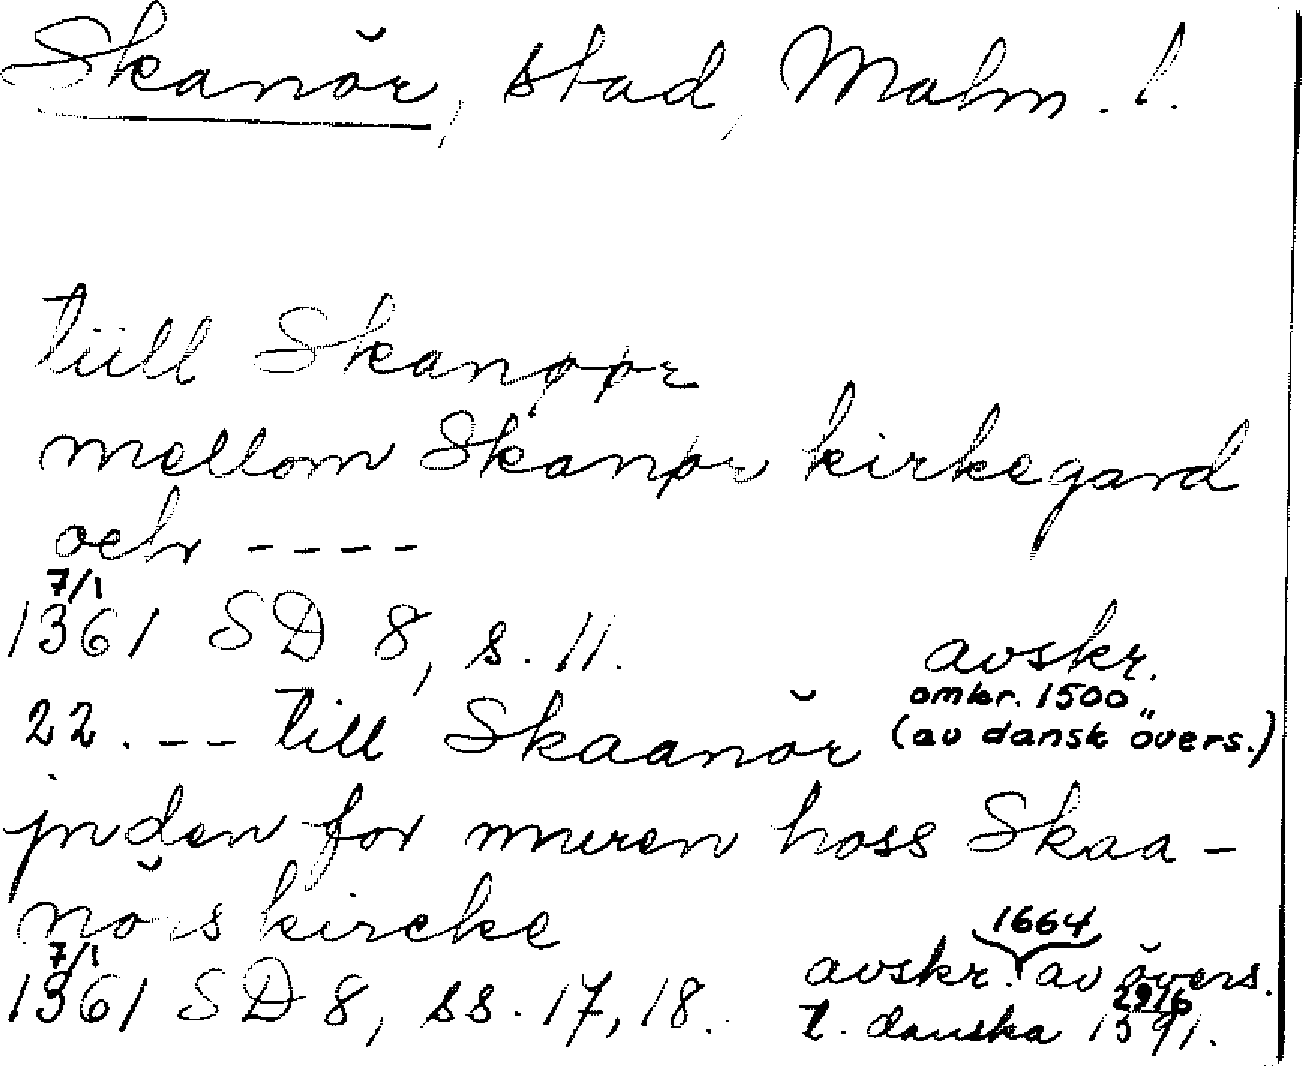 Skanör, stad, Malm. l.
tiill Skanøør
mellom Skanør kirkegard
och ----
7/1
1361 SD 8, s. 11.
avskr.
omkr. 1500
(av dansk övers.)
22. -- till Skaanör
jnden for muren hoss Skaa-
nörs kircke
7/1
1361 SD 8, ss. 17, 18.
1664
avskr. av övers.
t. danska 29/6 1591.